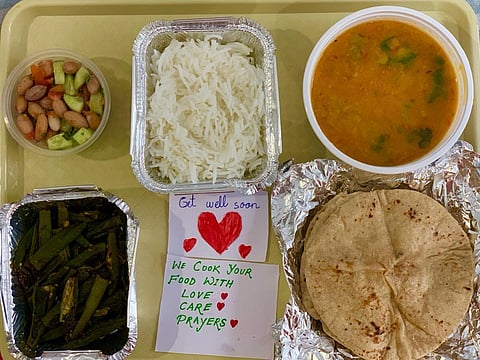 Get well soon
WE COOK YOUR
FOOD WITH
LOVE
CARE
PRAYERS